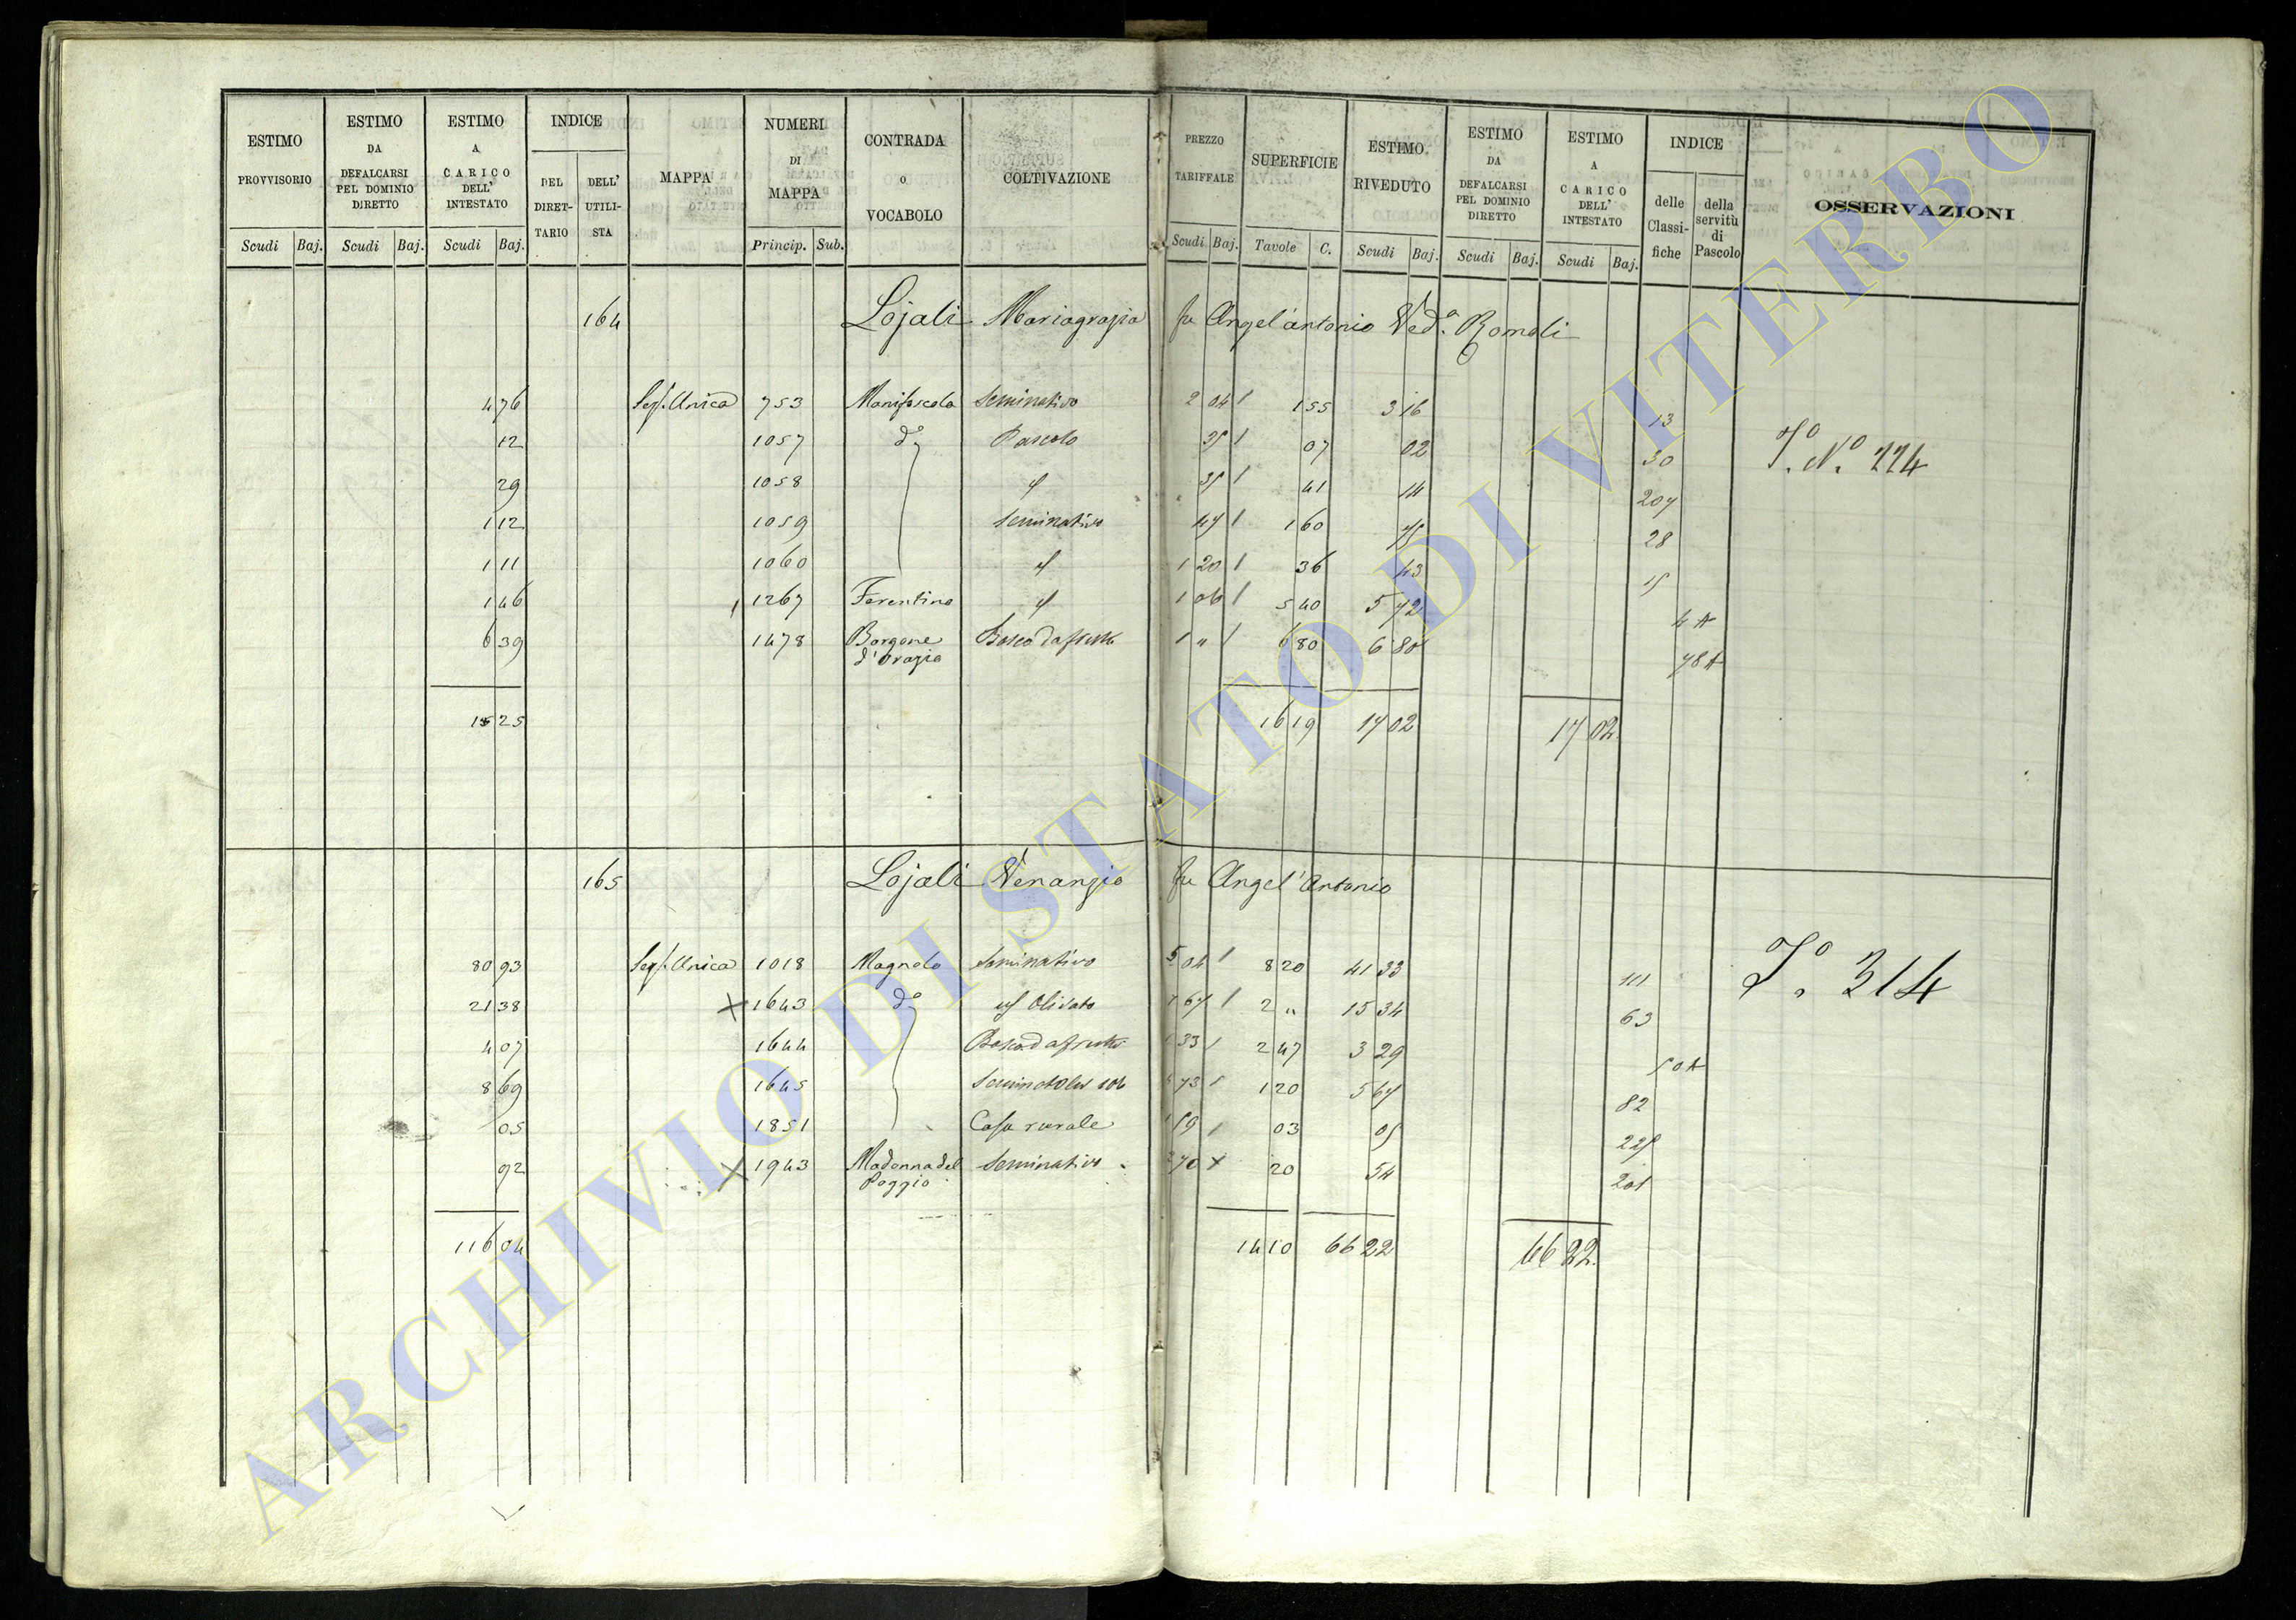 ESTIMO PROVVISORIO | ESTIMO DA DEFALCARSI PEL DOMINIO DIRETTO | ESTIMO A CARICO DELL' INTESTATO | INDICE DEL DIRETTARIO | DELL' UTILISTA | MAPPA | NUMERI DI MAPPA | CONTRADA O VOCABOLO | COLTIVAZIONE | PREZZO TARIFFALE | SUPERFICIE | ESTIMO RIVEDUTO | ESTIMO DA DEFALCARSI PEL DOMINIO DIRETTO | ESTIMO A CARICO DELL' INTESTATO | INDICE delle Classifiche | della servitù di Pascolo | OSSERVAZIONI
Scudi Baj. Scudi Baj. Scudi Baj. Princip. Sub. Scudi Baj. Tavole C. Scudi Baj. Scudi Baj. Scudi Baj.
164 Lojali Mariagrazia fu Angel'antonio Ved.a Romoli
4 76 Sez. Unica 753 Seminativo 2 04 1 55 3 16 13
12 1057 do Pascolo 07 02 30 To. No. 224
29 1058 41 14 207
1 12 1059 Seminativo 47 1 60 75 28
1 11 1060 1 20 36 43 15
1 46 1267 Ferentino 1 06 5 40 5 72 4 A
6 39 1478 Borgone d'Orazio Bosco da frutto 1 " 6 80 6 80 78 A
15 25 16 19 17 02 17 02
165 Lojali Venanzio fu Angel'Antonio
80 93 Sez. Unica 1018 Magnolo Seminativo 5 04 8 20 41 33 111 To. 314
21 38 1643 do Olivato 7 67 2 " 15 34 63
4 07 1644 Bosco da frutto 1 33 2 47 3 29 50 A
8 69 1645 4 73 1 20 5 67 82
05 1851 Casa rurale 1 59 03 05 225
92 1943 Madonna del Poggio Seminativo 2 70 20 54 201
116 04 14 10 66 22 66 22
ARCHIVIO DI STATO DI VITERBO